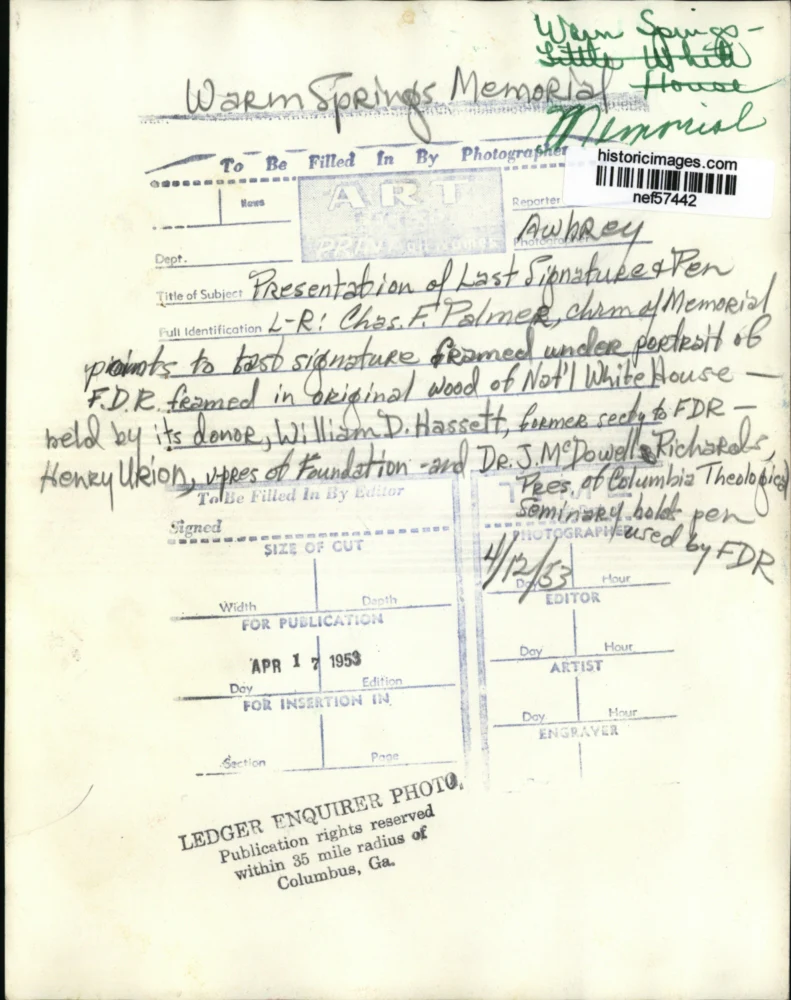 Warm Springs -
Little White
House
Memorial
Warm Springs Memorial
To Be Filled In By Photographer
historicimages.com
nef57442
News
ART
PRINT
Reporter
Awbrey
Photographer
Dept.
Title of Subject Presentation of Last Signature & Pen
Full Identification L-R: Chas. F. Palmer, chrm of Memorial
points to last signature framed under portrait of
F.D.R. framed in original wood of Nat'l White House —
held by its donor, William D. Hassett, former secty to FDR —
Henry Urion, v-pres of Foundation - and Dr. J. McDowell Richards,
Pres. of Columbia Theological
Seminary holds pen
used by FDR
To Be Filled In By Editor
Signed
SIZE OF CUT
Width Depth
FOR PUBLICATION
APR 17 1953
Day Edition
FOR INSERTION IN
Section Page
TIME
PHOTOGRAPHER
4/12/53
Day Hour
EDITOR
Day Hour
ARTIST
Day Hour
ENGRAVER
LEDGER ENQUIRER PHOTO.
Publication rights reserved
within 35 mile radius of
Columbus, Ga.